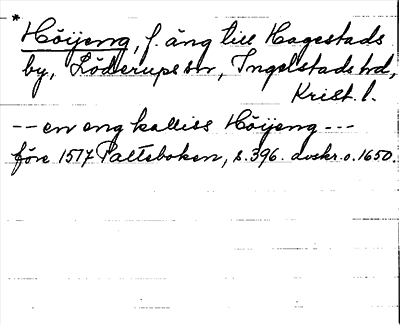 * Höijeng, f. äng till Hagestads
by, Löderups sn, Ingelstads hd,
Krist. l.
-- en eng kalliss Höijeng ---
före 1517 Palteboken, s. 396. avskr. o. 1650.